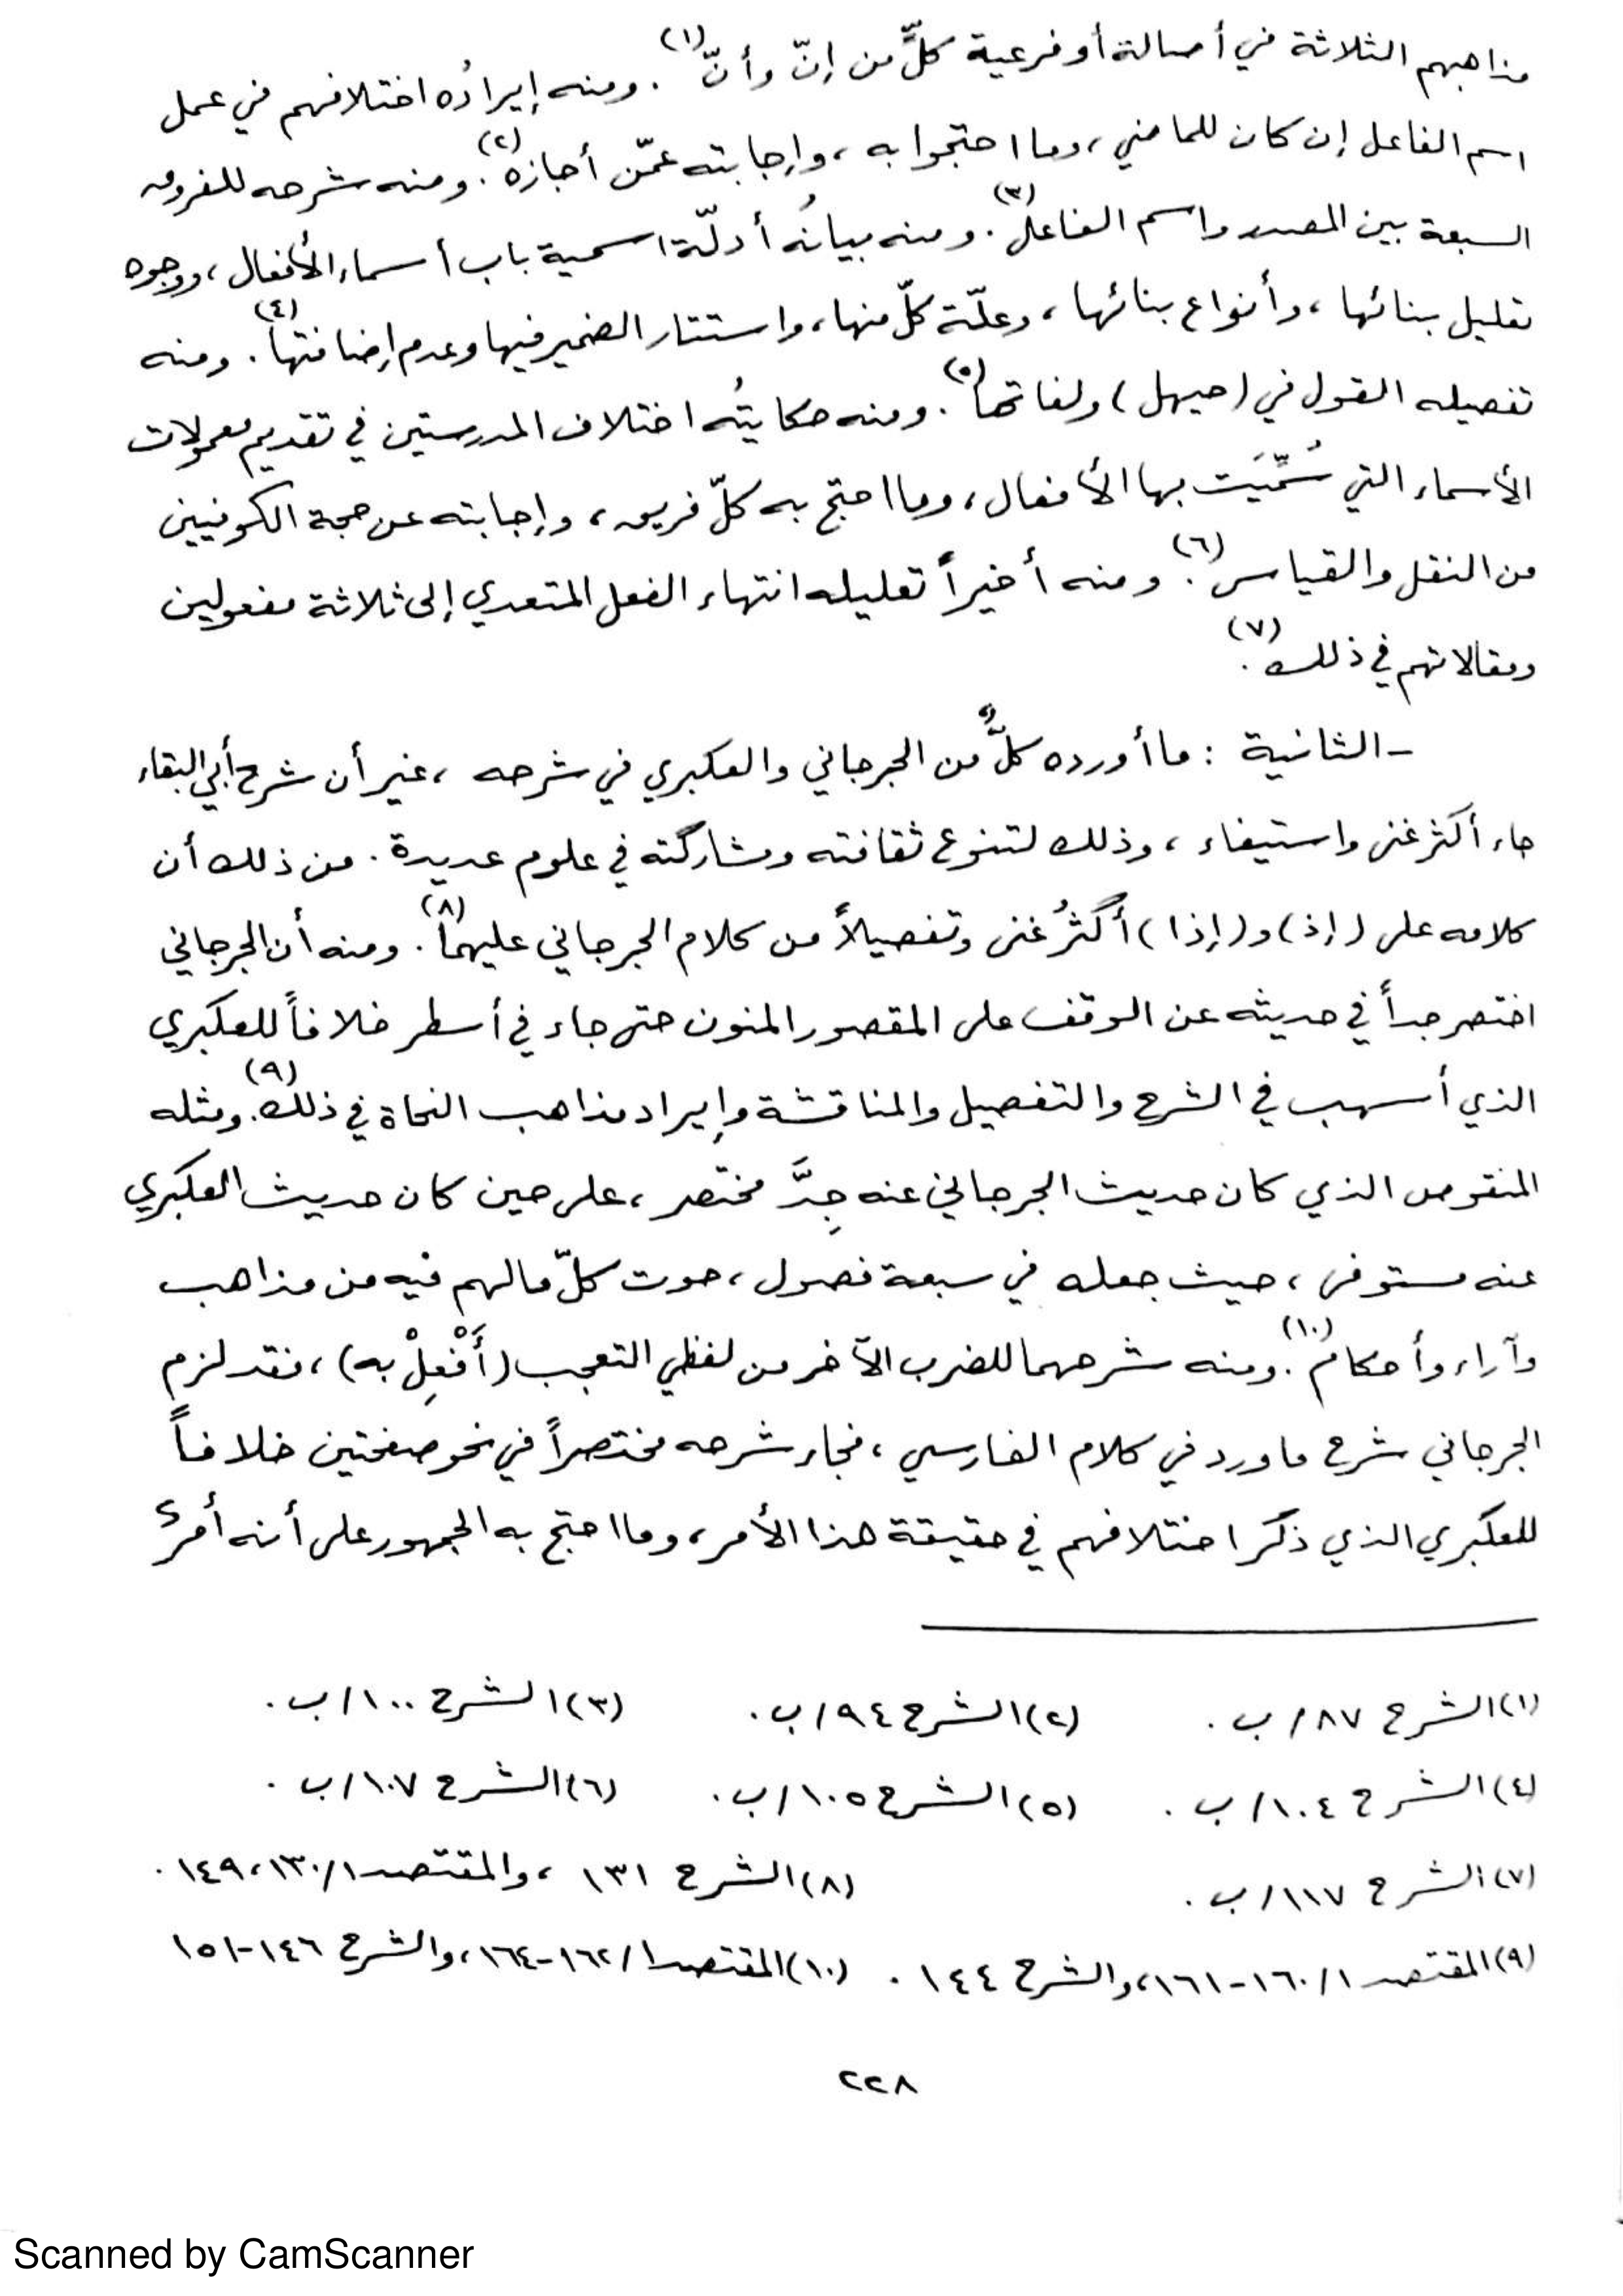 مذاهبهم الثلاثة في أصالة أو فرعية كلٍّ من إنّ وأنّ(١). ومنه إيرادُه اختلافهم في عمل
اسم الفاعل إن كان للماضي، وما احتجوا به، وإجابته عمّن أجازه(٢). ومنه شرحه للفروق
السبعة بين المصدر واسم الفاعل(٣). ومنه بيانُه أدلّة اسمية باب أسماء الأفعال، ووجوه
تعليل بنائها، وأنواع بنائها، وعلّة كلّ منها، واستتار الضمير فيها وعدم إضافتها(٤). ومنه
تفصيله القول في (حيهل) ولغاتها(٥). ومنه حكايتُه اختلاف المدرستين في تقديم معمولات
الأسماء التي سُمِّيَت بها الأفعال، وما احتج به كلّ فريق، وإجابته عن حجة الكوفيين
من النقل والقياس(٦). ومنه أخيراً تعليله انتهاء الفعل المتعدي إلى ثلاثة مفعولين
ومقالاتهم في ذلك(٧).
- الثانية : ما أورده كلٌّ من الجرجاني والعكبري في شرحه، غير أن شرح أبي البقاء
جاء أكثر غنى واستيفاء، وذلك لتنوع ثقافته ومشاركته في علوم عديدة. من ذلك أن
كلامه على (إذ) و(إذا) أكثرُ غنى وتفصيلاً من كلام الجرجاني عليهما(٨). ومنه أن الجرجاني
اختصر جداً في حديثه عن الوقف على المقصور المنون حتى جاء في أسطر خلافاً للعكبري
الذي أسهب في الشرح والتفصيل والمناقشة وإيراد مذاهب النحاة في ذلك(٩). ومثله
المنقوص الذي كان حديث الجرجاني عنه جِدَّ مختصر، على حين كان حديث العكبري
عنه مستوفى، حيث جعله في سبعة فصول، حوت كلّ مالهم فيه من مذاهب
وآراء وأحكام(١٠). ومنه شرحهما للضرب الآخر من لفظي التعجب (أَفْعِلْ به)، فقد لزم
الجرجاني شرح ما ورد في كلام الفارسي، فجاء شرحه مختصراً في نحو صفحتين خلافاً
للعكبري الذي ذكر اختلافهم في حقيقة هذا الأمر، وما احتج به الجمهور على أنه أمرٌ
(١) الشرح ٨٧/ب. (٢) الشرح ٩٤/ب. (٣) الشرح ١٠٠/ب.
(٤) الشرح ١٠٤/ب. (٥) الشرح ١٠٥/ب. (٦) الشرح ١٠٧/ب.
(٧) الشرح ١١٧/ب. (٨) الشرح ١٣١، والمقتصد ١/١٣٠، ١٤٩.
(٩) المقتصد ١/١٦٠-١٦١، والشرح ١٤٤. (١٠) المقتصد ١/١٦٢-١٦٤، والشرح ١٤٦-١٥١
٢٢٨
Scanned by CamScanner